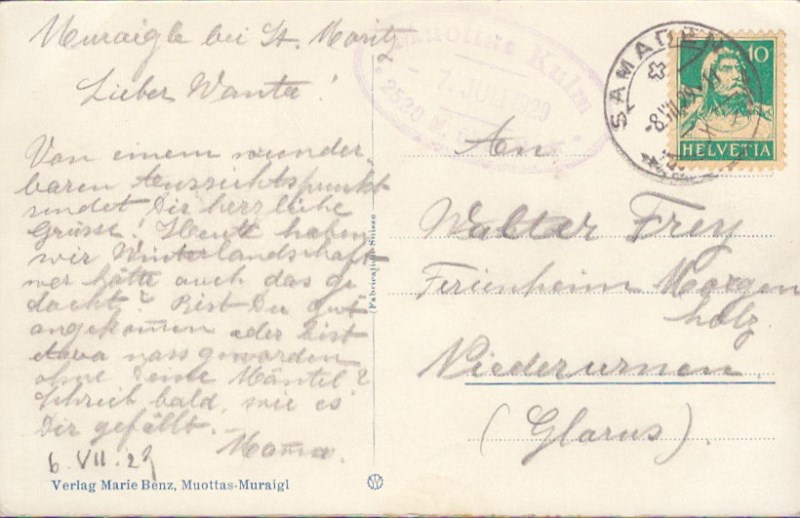 Muraigla bei St. Moritz
Lieber Wanta!
Von einem wunder-
baren Aussichtspunkt
sendet Dir herrliche
Grüsse! Heute haben
wir Winterlandschaft
wer hätte auch das ge
dacht? Bist Du gut
angekom̅en oder bist
etwa nass geworden
ohne Deine Mäntel?
Schreib bald, wie es
Dir gefällt.-
Mama.
6. VII. 29
Verlag Marie Benz, Muottas-Muraigl
(Fabrication Suisse
Muottas Kulm
- 7. JULI 1929
2520 M.
SAMADEN
-8.VII.29
10
HELVETIA
An
Walter Frey
Ferienheim Morgen
holz
Niederurnen
(Glarus).